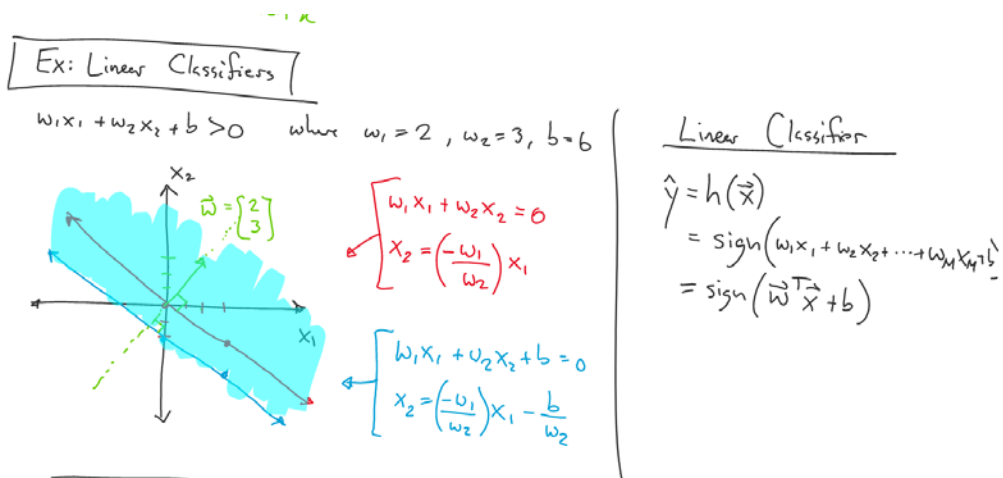 Ex: Linear Classifiers
w₁x₁ + w₂x₂ + b > 0 where w₁ = 2, w₂ = 3, b = 6
x₂
w⃗ = [2 3]
x₁
w₁x₁ + w₂x₂ = 0
x₂ = (-w₁/w₂) x₁
w₁x₁ + w₂x₂ + b = 0
x₂ = (-w₁/w₂) x₁ - b/w₂
Linear Classifier
ŷ = h(x⃗)
= sign(w₁x₁ + w₂x₂ + ... + w_M x_M + b)
= sign(w⃗ᵀx⃗ + b)